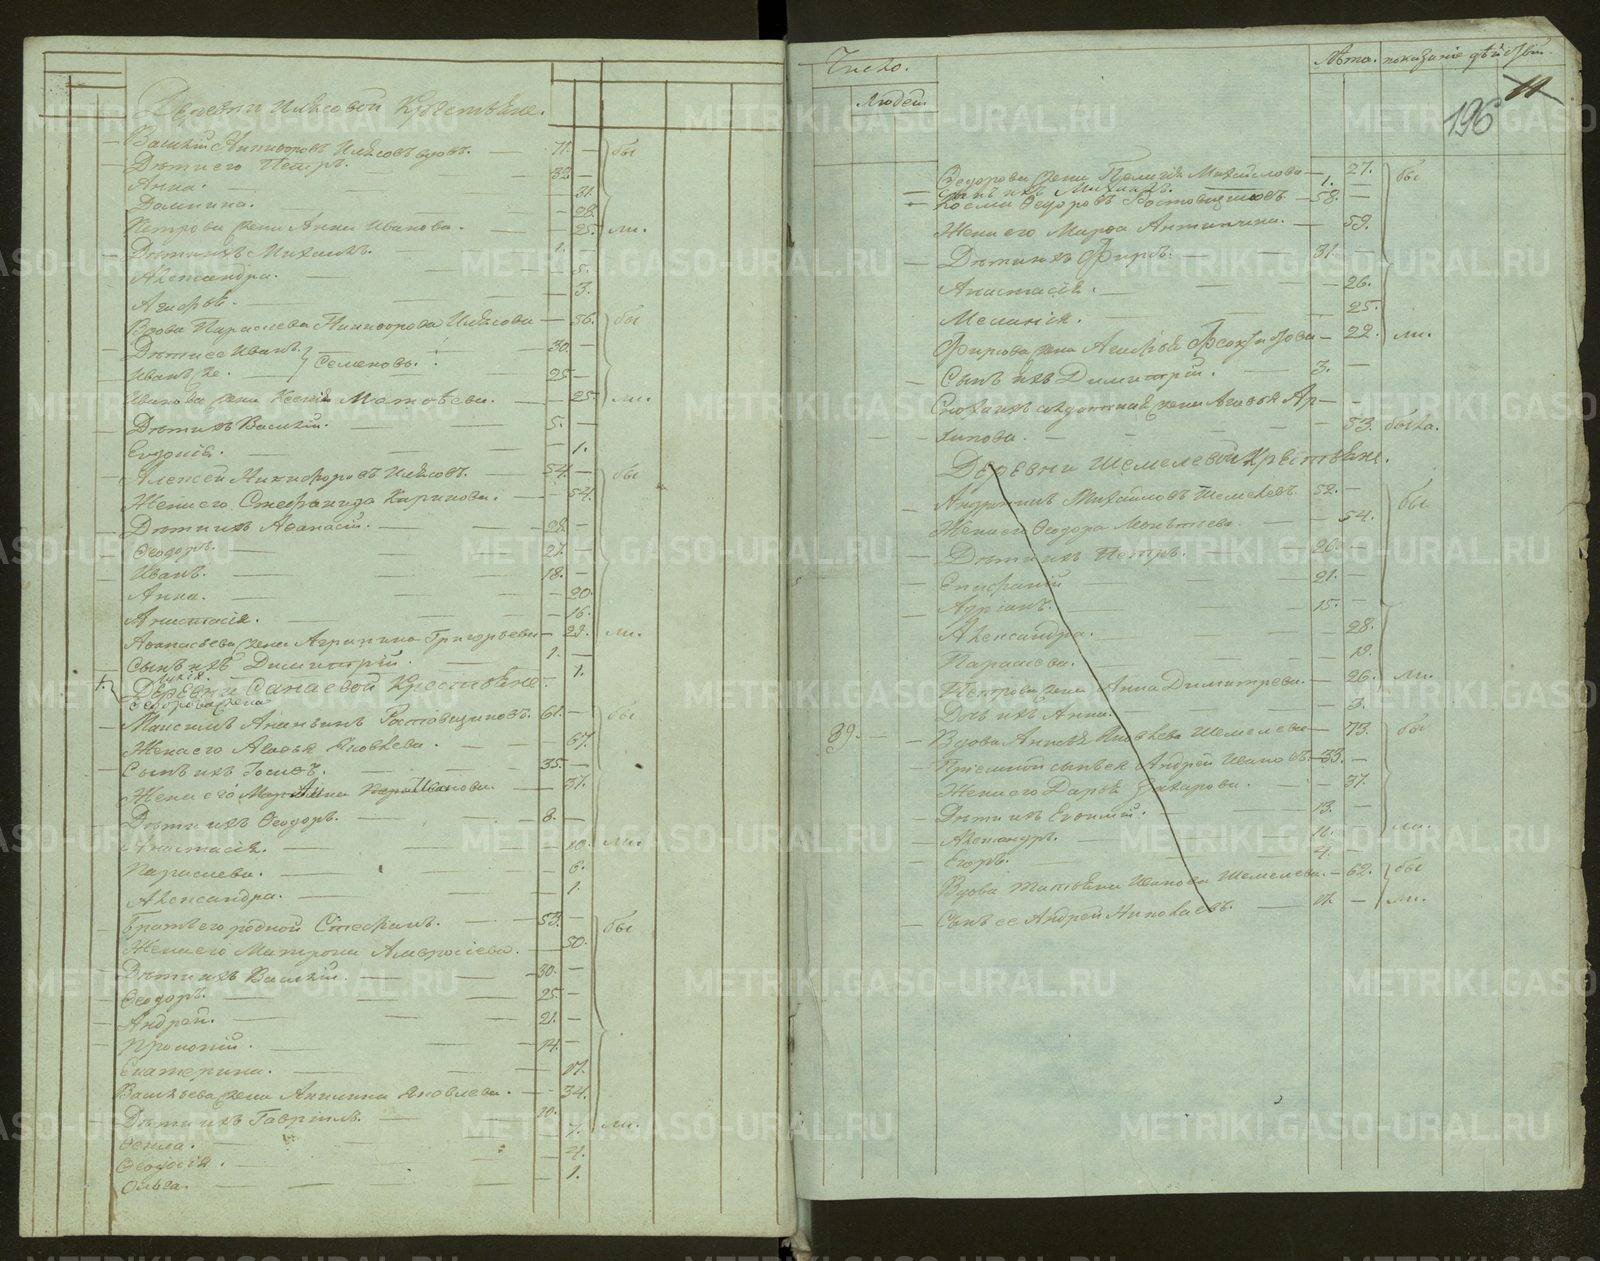 Деревни Илясовой Крестьяне.
Василий Никифоровъ Илясовъ вдовъ. 71. бы
Дѣти его Петръ. 32
Анна. 31.
Домнина. 28.
Петрова жена Анна Иванова. 25. ли.
Дѣти ихъ Михаилъ. 1.
Александра. 5.
3.
Вдова Параскева Никифорова Илясова 56. бы
Дѣти ее Иванъ. 30.
Иванъ же. Семеновы. 25
Иванова жена Ксенія Матвѣева. 25. ли.
Дѣти ихъ Василій. 5.
Евдокія. 1.
Алексей Никифоровъ Илясовъ. 54. бы
Жена его Стефанида Карпова. 54.
Дѣти ихъ Аѳанасій. 28.
Ѳеодоръ. 21.
Иванъ. 18.
Анна. 20.
Анастасія. 16.
Аѳанасьева жена Агрипина Григорьева 23. ли.
Сынъ ихъ Димитрій. 1.
1.
Деревни Санаевой Крестьяне.
Ѳедорова жена
Максимъ Ананьинъ Ростовщиковъ. 61. бы
Жена его Агафья Яковлева. 67.
Сынъ ихъ Іосифъ. 35.
Жена его 37.
Дѣти ихъ Ѳеодоръ. 8.
Анастасія. 10. ли.
Параскева. 6.
Александра. 1.
Братъ его родной Стефанъ. 53. бы
Жена его Матрона Амвросіева. 50.
Дѣти ихъ Василій. 30.
Ѳеодоръ. 25
Андрей. 21.
Прокопій. 14.
Екатерина. 17.
Васильева жена Аникия Яковлева. 34.
Дѣти ихъ Гавріилъ. 10. ли.
Ѳекла. 7.
Ѳеодосія. 4.
Ольга. 1.
Число. Лѣта. показаніе дѣйств.
Людей 196 11
Ѳедорова жена Пелагія Михайлова 27. бы
Сынъ ихъ Михаилъ. 1.
Косма Ѳедоровъ Ростовщиковъ. 58.
Жена его Марѳа Антипина. 59.
Дѣти ихъ Фирсъ. 31.
Анастасія. 26.
Меланія. 25.
Фирсова жена Агафья 22. ли.
Сынъ ихъ Димитрій. 3.
Сноха ихъ жена Агафья Ар
хипова. 53. была.
Деревни Шемелевой Крестьяне.
Андроникъ Михайловъ Шемелевъ. 52. бы
Жена его Ѳеодора 54.
Дѣти ихъ Петръ. 26.
Епифаній 21.
Адріанъ. 15.
Александра. 28.
Параскева. 19.
Петрова жена Анна Димитрева. 26. ли.
Дочь ихъ Анна. 3.
89. Вдова Яковлева Шемелева 73. бы
Пріемной сынъ ея Андрей Ивановъ. 33.
Жена его Дарья Захарова. 37.
Дѣти ихъ Евѳимій. 13.
Александръ. 11. ли.
Егоръ. 4.
Вдова Татьяна Иванова Шемелева. 62. бы
Сынъ ее Андрей Николаевъ. 17. ли.
METRIKI.GASO-URAL.RU